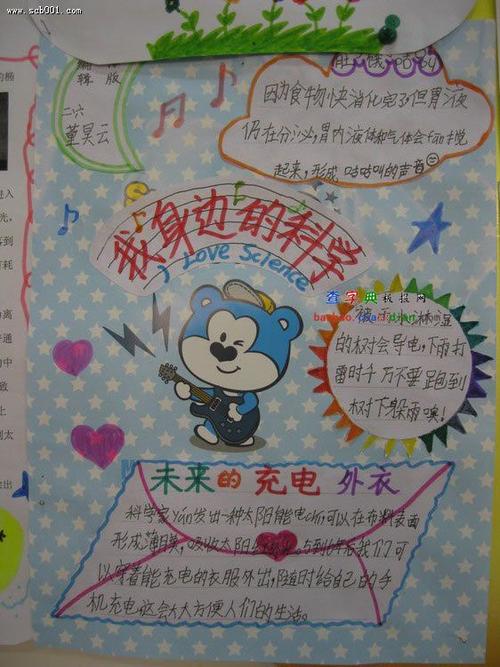 www.scb001.com
编 排
辑 版
二六
董昊云
肚子饿
因为食物快消化完了但胃液
仍在分泌,胃内液体和气体会fan搅
起来,形成咕咕叫的声音
我身边的科学
I Love Science
查字典板报网
的树会导电,下雨打
雷时千万不要跑到
树下躲雨噢!
未来的充电外衣
科学家yán发出一种太阳能电chí可以在布料表面
形成薄膜,吸收太阳 5到6年后我们可
以穿着能充电的衣服外出,随时给自己的手
机充电这会大大方便人们的生活。